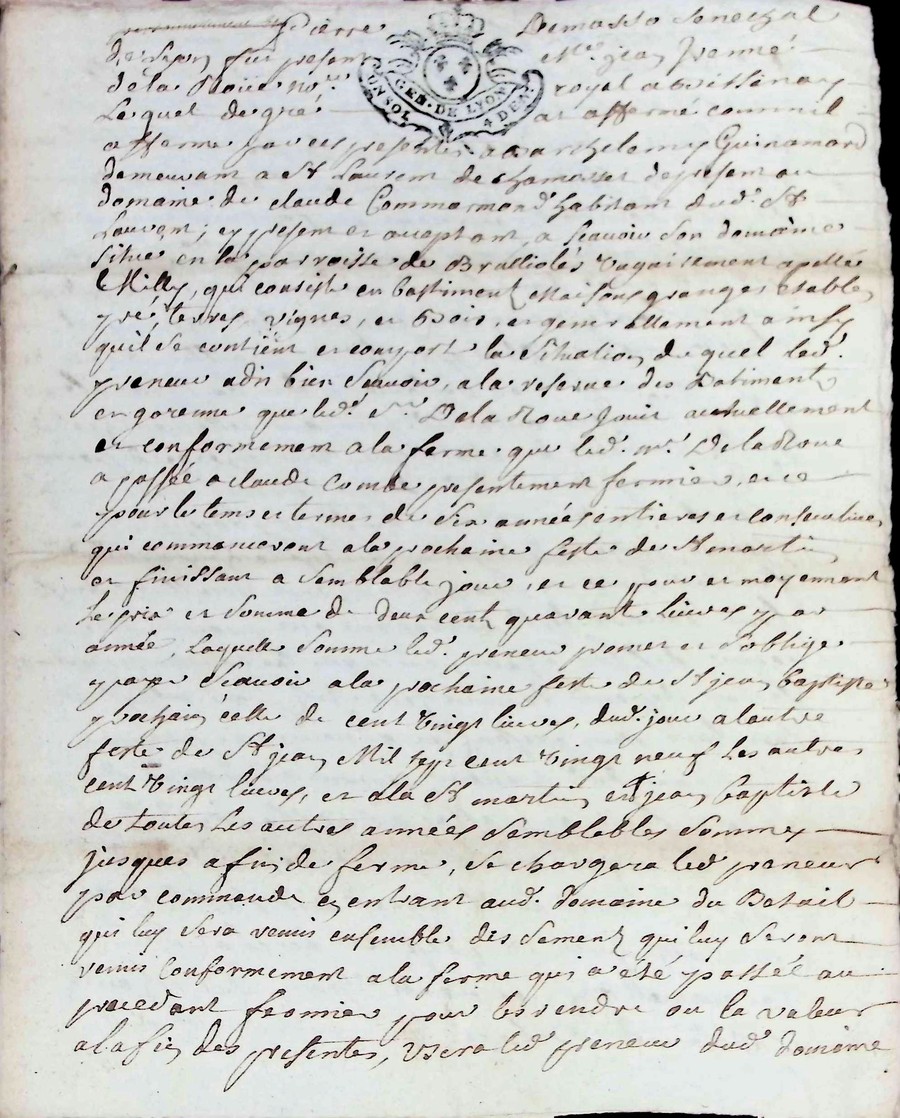 Pierre Demasso Senechal
de Lyon fut present Mre. jean
de la Noüe nre. royal a Brissenay
Lequel de gré a affermé comme il
afferme par ces presentes a Barthelemy Guinamard
demeurant a St Laurent de chamousset de present au
domaine de claude Commarmond habitant dud. St
Laurent, cy present et acceptant, a Scavoir Son domaine
Situé en la parroisse de Brulliolés vulgairement apellé
Milly, qui consiste en bastiments Maisons granges Estables
pré, terres, vignes, et Bois, et generallement ainsy
quil Se contient et comport la Situation du quel led.
preneur a dit bien Scavoir, a la reserve des Batiments
et garenne que led. Sr. De la Noue Jouit actuellement
et conformement a la ferme que led. Sr. De la Noue
a passée a claude Comte presentement fermier, et ce
pour le tems et termes de Six années entieres et consecutives
qui commanceront a la prochaine feste de St martin
et finissant a Semblable jour, et ce pour et moyennant
Le prix et Somme de deux cents quarant livres par
année, Laquelle Somme led. preneur promet et S'oblige
payer Scavoir a la prochaine feste de St jean baptiste
prochain celle de cent vingt livres, dud. jour a l'autre
feste de St jean Mil Sept cent vingt neuf Les autres
cent vingt livres, et a la St martin et St jean baptiste
de toutes Les autres années Semblables Sommes
jusques a fin de ferme, Se chargera led. preneur
par commande en entrant aud. domaine du Betail
qui luy Sera remis ensemble des Semences qui luy Seront
remis Conformement a la ferme qui a été passée au
precedant fermier pour les rendre ou la valeur
a la fin des presentes, usera led. preneur dud. domaine